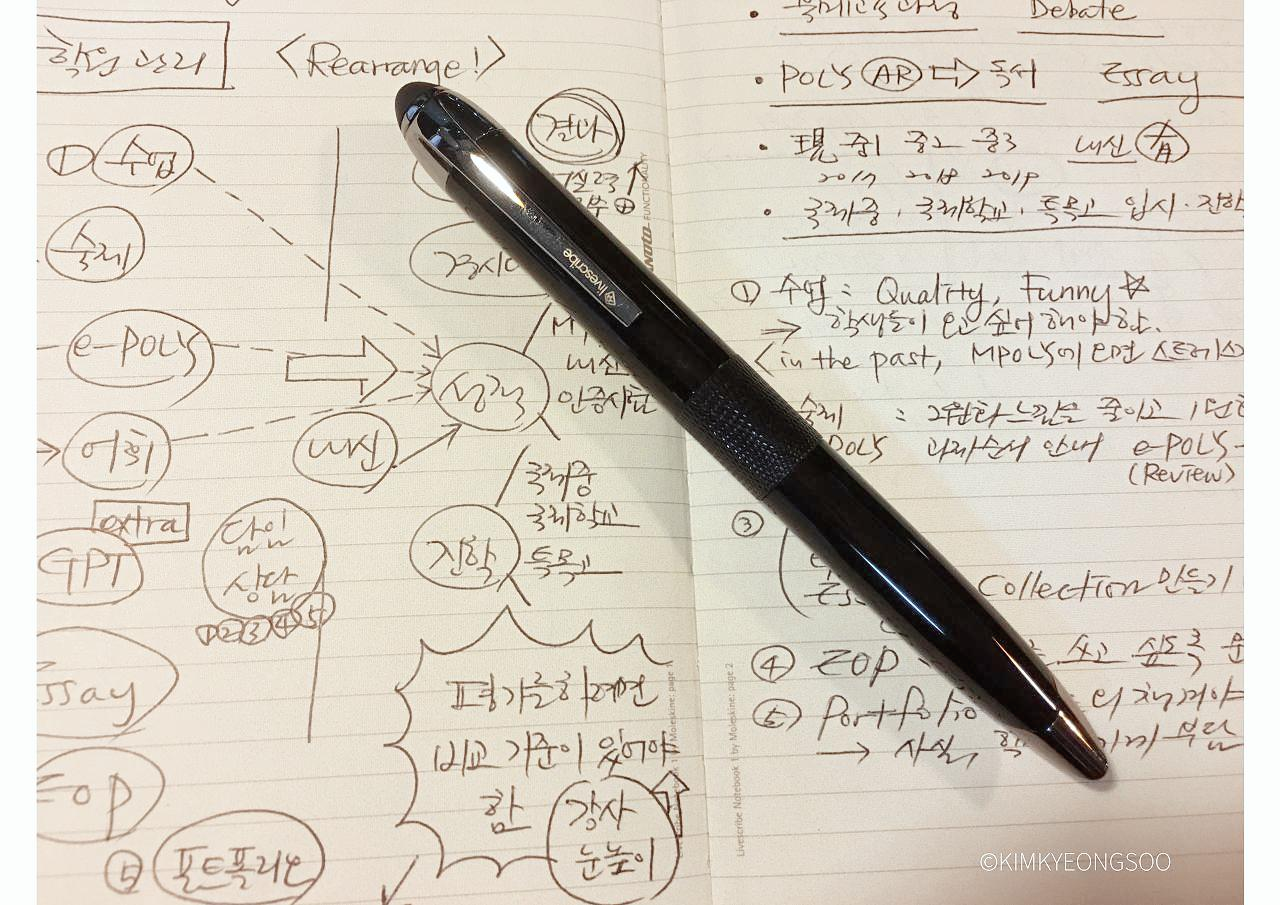 학원 관리
<Rearrange!>
① 수업
숙제
e-POLY
어휘
extra
GPT
Essay
EOP
포트폴리오
담임
상담
①②③④⑤
내신
성적
결과
실력
경시
내신
인증시험
진학
국제중
국제학교
특목고
평가를 하려면
비교 기준이 있어야
함
강사
눈높이
livescribe
FUNCTIONALITY
1 by Moleskine: page 1
Livescribe Notebook 1 by Moleskine: page 2
Debate
• POLY AR ⇨ 독서 Essay
• 現 중1 중2 중3 내신 有
2017 2018 2019
• 국제중, 국제학교, 특목고 입시·진학
① 수업 : Quality, Funny ☆
⇒ 학생들이 오고 싶어 해야 함.
in the past, MPOLY에 오면 스트레스
숙제 : 그 느낌은 줄이고
과제순서 안내 e-POLY
(Review)
③
Collection 만들기
④ EOP 쓰고 싶도록
⑤ Portfolio 더 챙겨야
→ 사실, 부담
©KIMKYEONGSOO